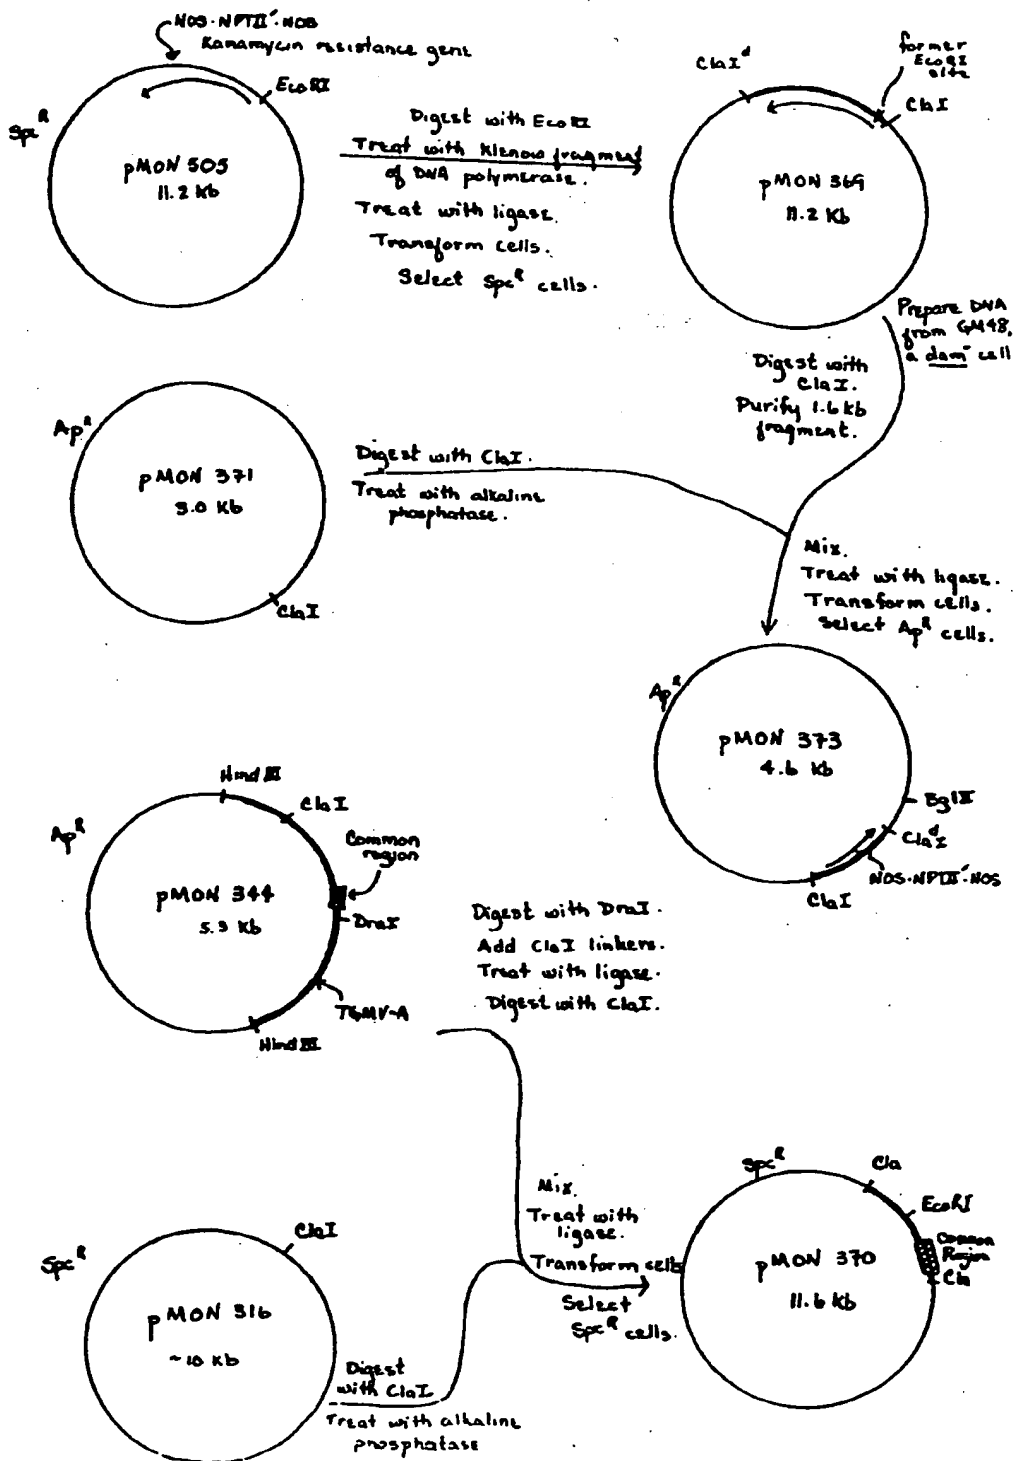 NOS·NPTII'·NOS
Kanamycin resistance gene
EcoRI
Spc^R
pMON 505
11.2 Kb
Digest with EcoRI
Treat with Klenow fragment
of DNA polymerase.
Treat with ligase.
Transform cells.
Select Spc^R cells.
ClaI^d
former
EcoRI
site
ClaI
pMON 369
11.2 Kb
Prepare DNA
from GM48,
a dam^- cell
Digest with
ClaI.
Purify 1.6 kb
fragment.
Ap^R
pMON 371
3.0 Kb
ClaI
Digest with ClaI.
Treat with alkaline
phosphatase.
Mix.
Treat with ligase.
Transform cells.
Select Ap^R cells.
Ap^R
pMON 373
4.6 Kb
BglII
Cla^dI
NOS·NPTII'·NOS
ClaI
Hind III
ClaI
Ap^R
Common
region
pMON 344
5.3 Kb
DraI
TGMV-A
Hind III
Digest with DraI.
Add ClaI linkers.
Treat with ligase.
Digest with ClaI.
Mix.
Treat with
ligase.
Transform cells
Select
Spc^R cells.
Spc^R
ClaI
pMON 316
~10 Kb
Digest
with ClaI
Treat with alkaline
phosphatase
Spc^R
Cla
EcoRI
Common
Region
Cla
pMON 370
11.6 Kb